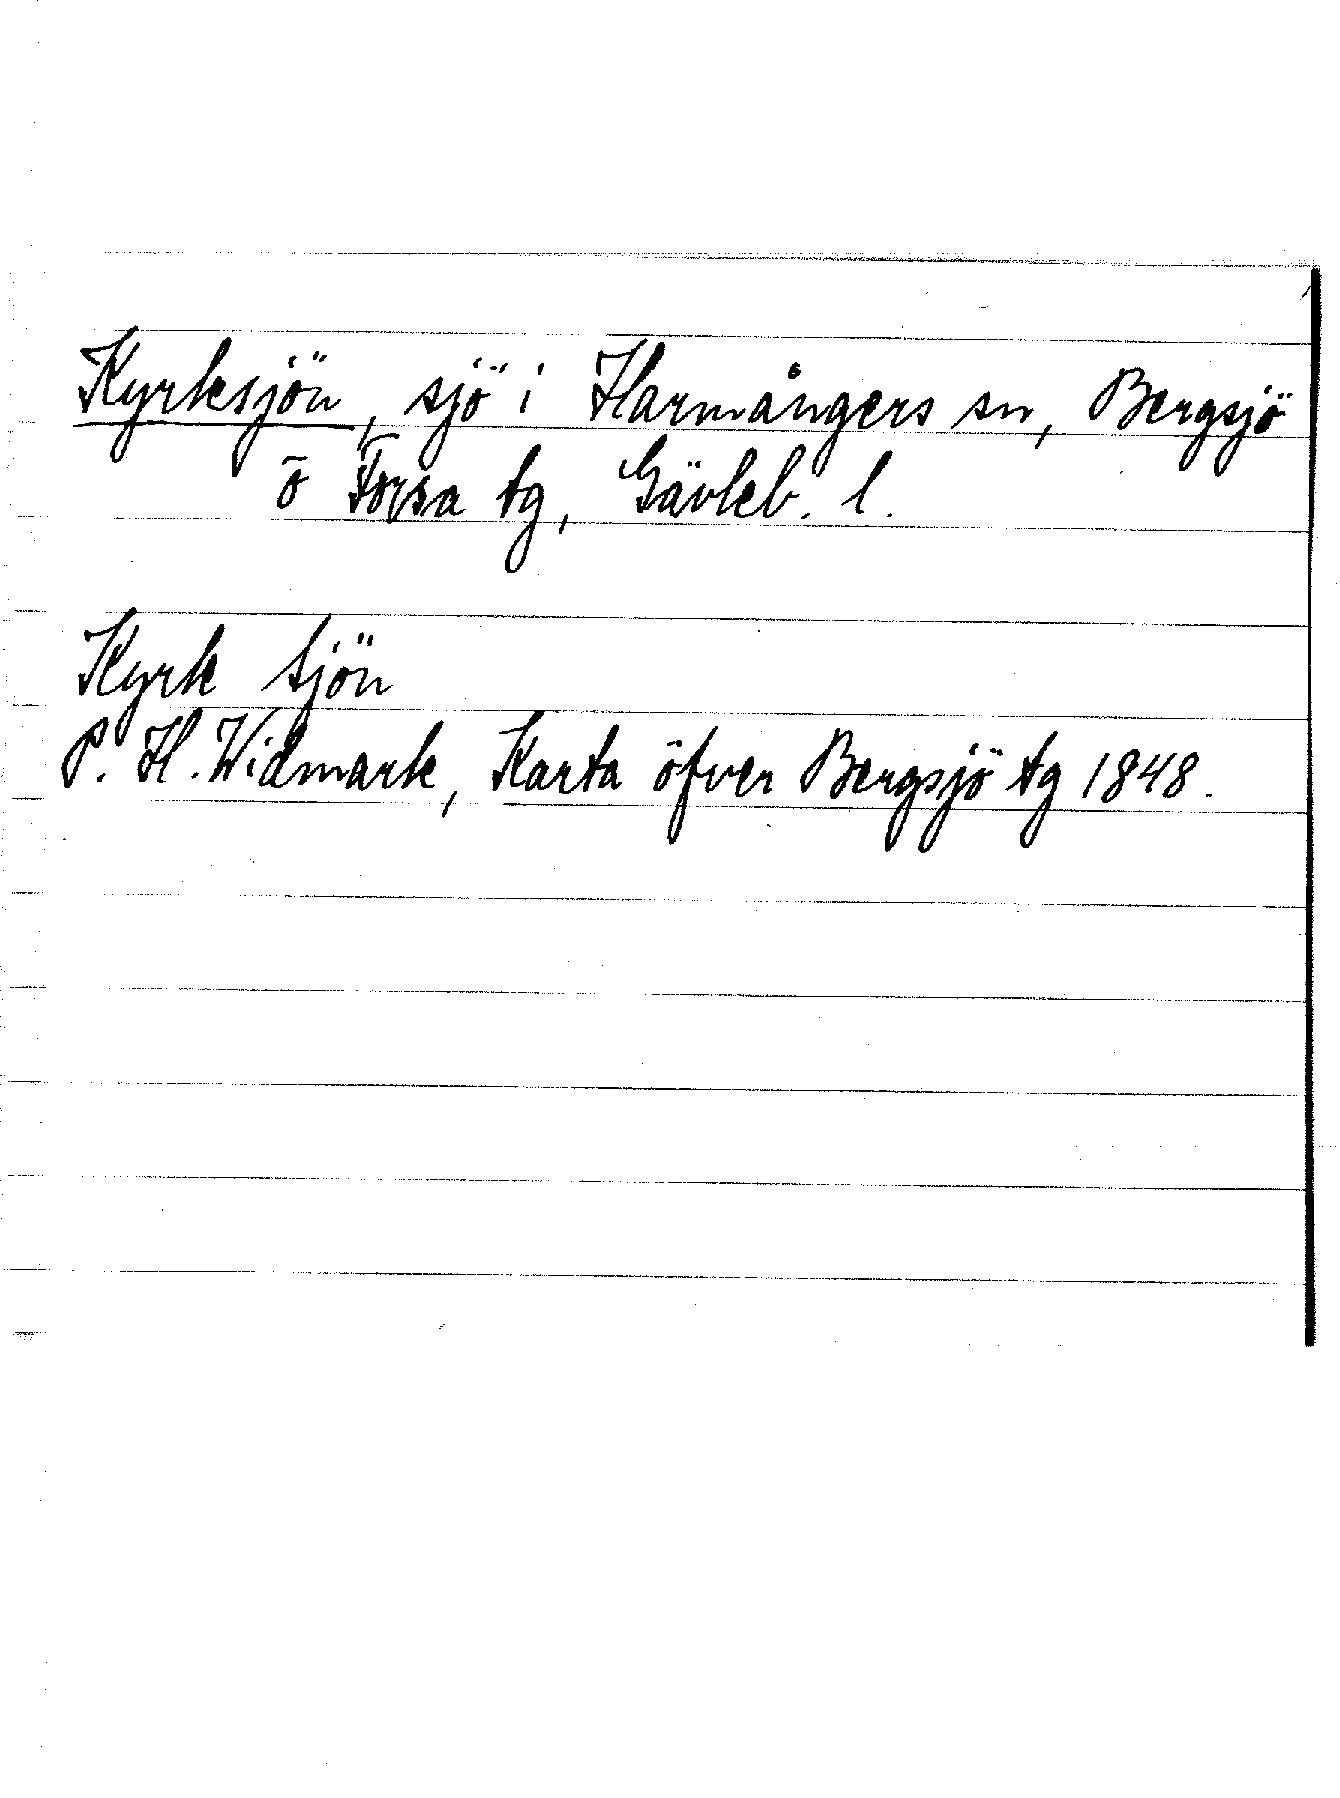 Kyrksjön, sjö i Harmångers sn, Bergsjö
o Forsa tg, Gävleb. l.
Kyrk sjön
P. H. Widmark, Karta öfver Bergsjö tg 1848.